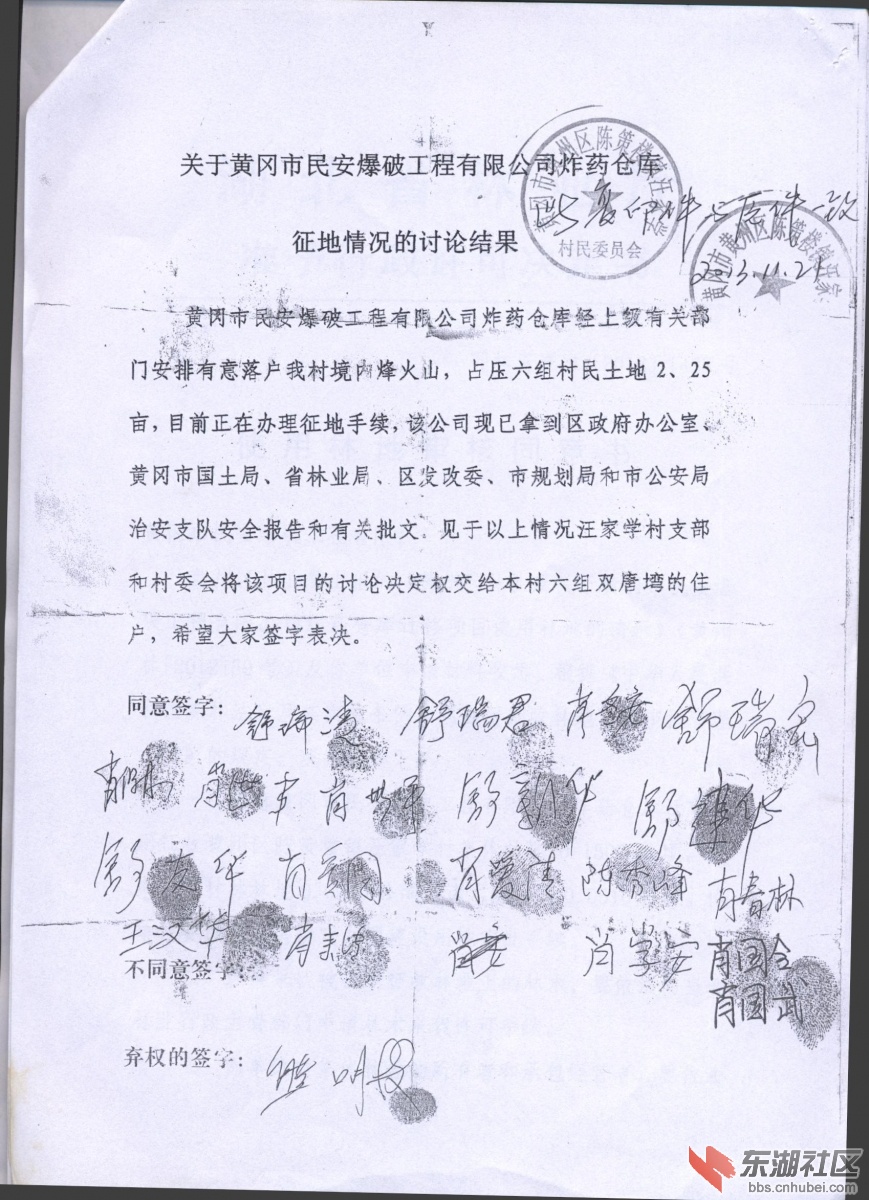 关于黄冈市民安爆破工程有限公司炸药仓库
征地情况的讨论结果
此复印件与原件一致
2013.11.21
村民委员会
黄冈市民安爆破工程有限公司炸药仓库经上级有关部
门安排有意落户我村境内烽火山，占压六组村民土地2、25
亩，目前正在办理征地手续，该公司现已拿到区政府办公室、
黄冈市国土局、省林业局、区发改委、市规划局和市公安局
治安支队安全报告和有关批文。见于以上情况汪家学村支部
和村委会将该项目的讨论决定权交给本村六组双唐塆的住
户，希望大家签字表决。
同意签字：
舒瑞君 舒瑞宏
舒新华 舒建华
舒友华 肖爱清 陈秀峰 肖春林
王汉华 肖学安 肖国全
不同意签字：
肖国武
弃权的签字：
东湖社区
bbs.cnhubei.com